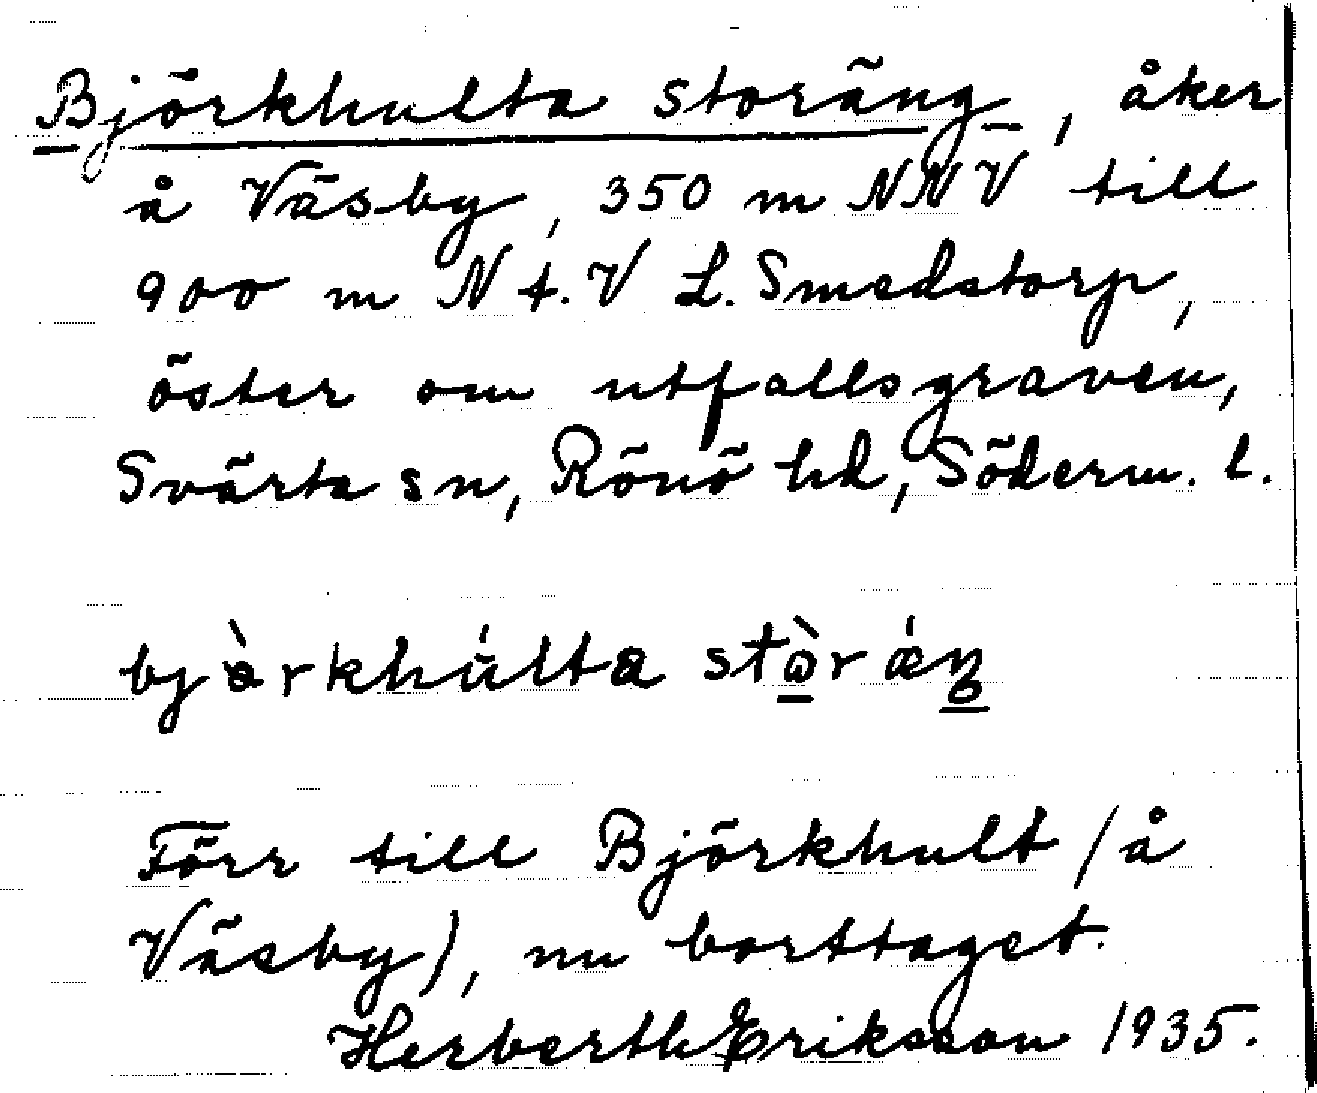 Björkhulta storäng, åker
å Väsby, 350 m NNV till
900 m N t. V L. Smedstorp,
öster om utfallsgraven,
Svärta sn, Rönö hd, Söderm. l.
Förr till Björkhult (å
Väsby), nu borttaget.
Herberth Eriksson 1935.